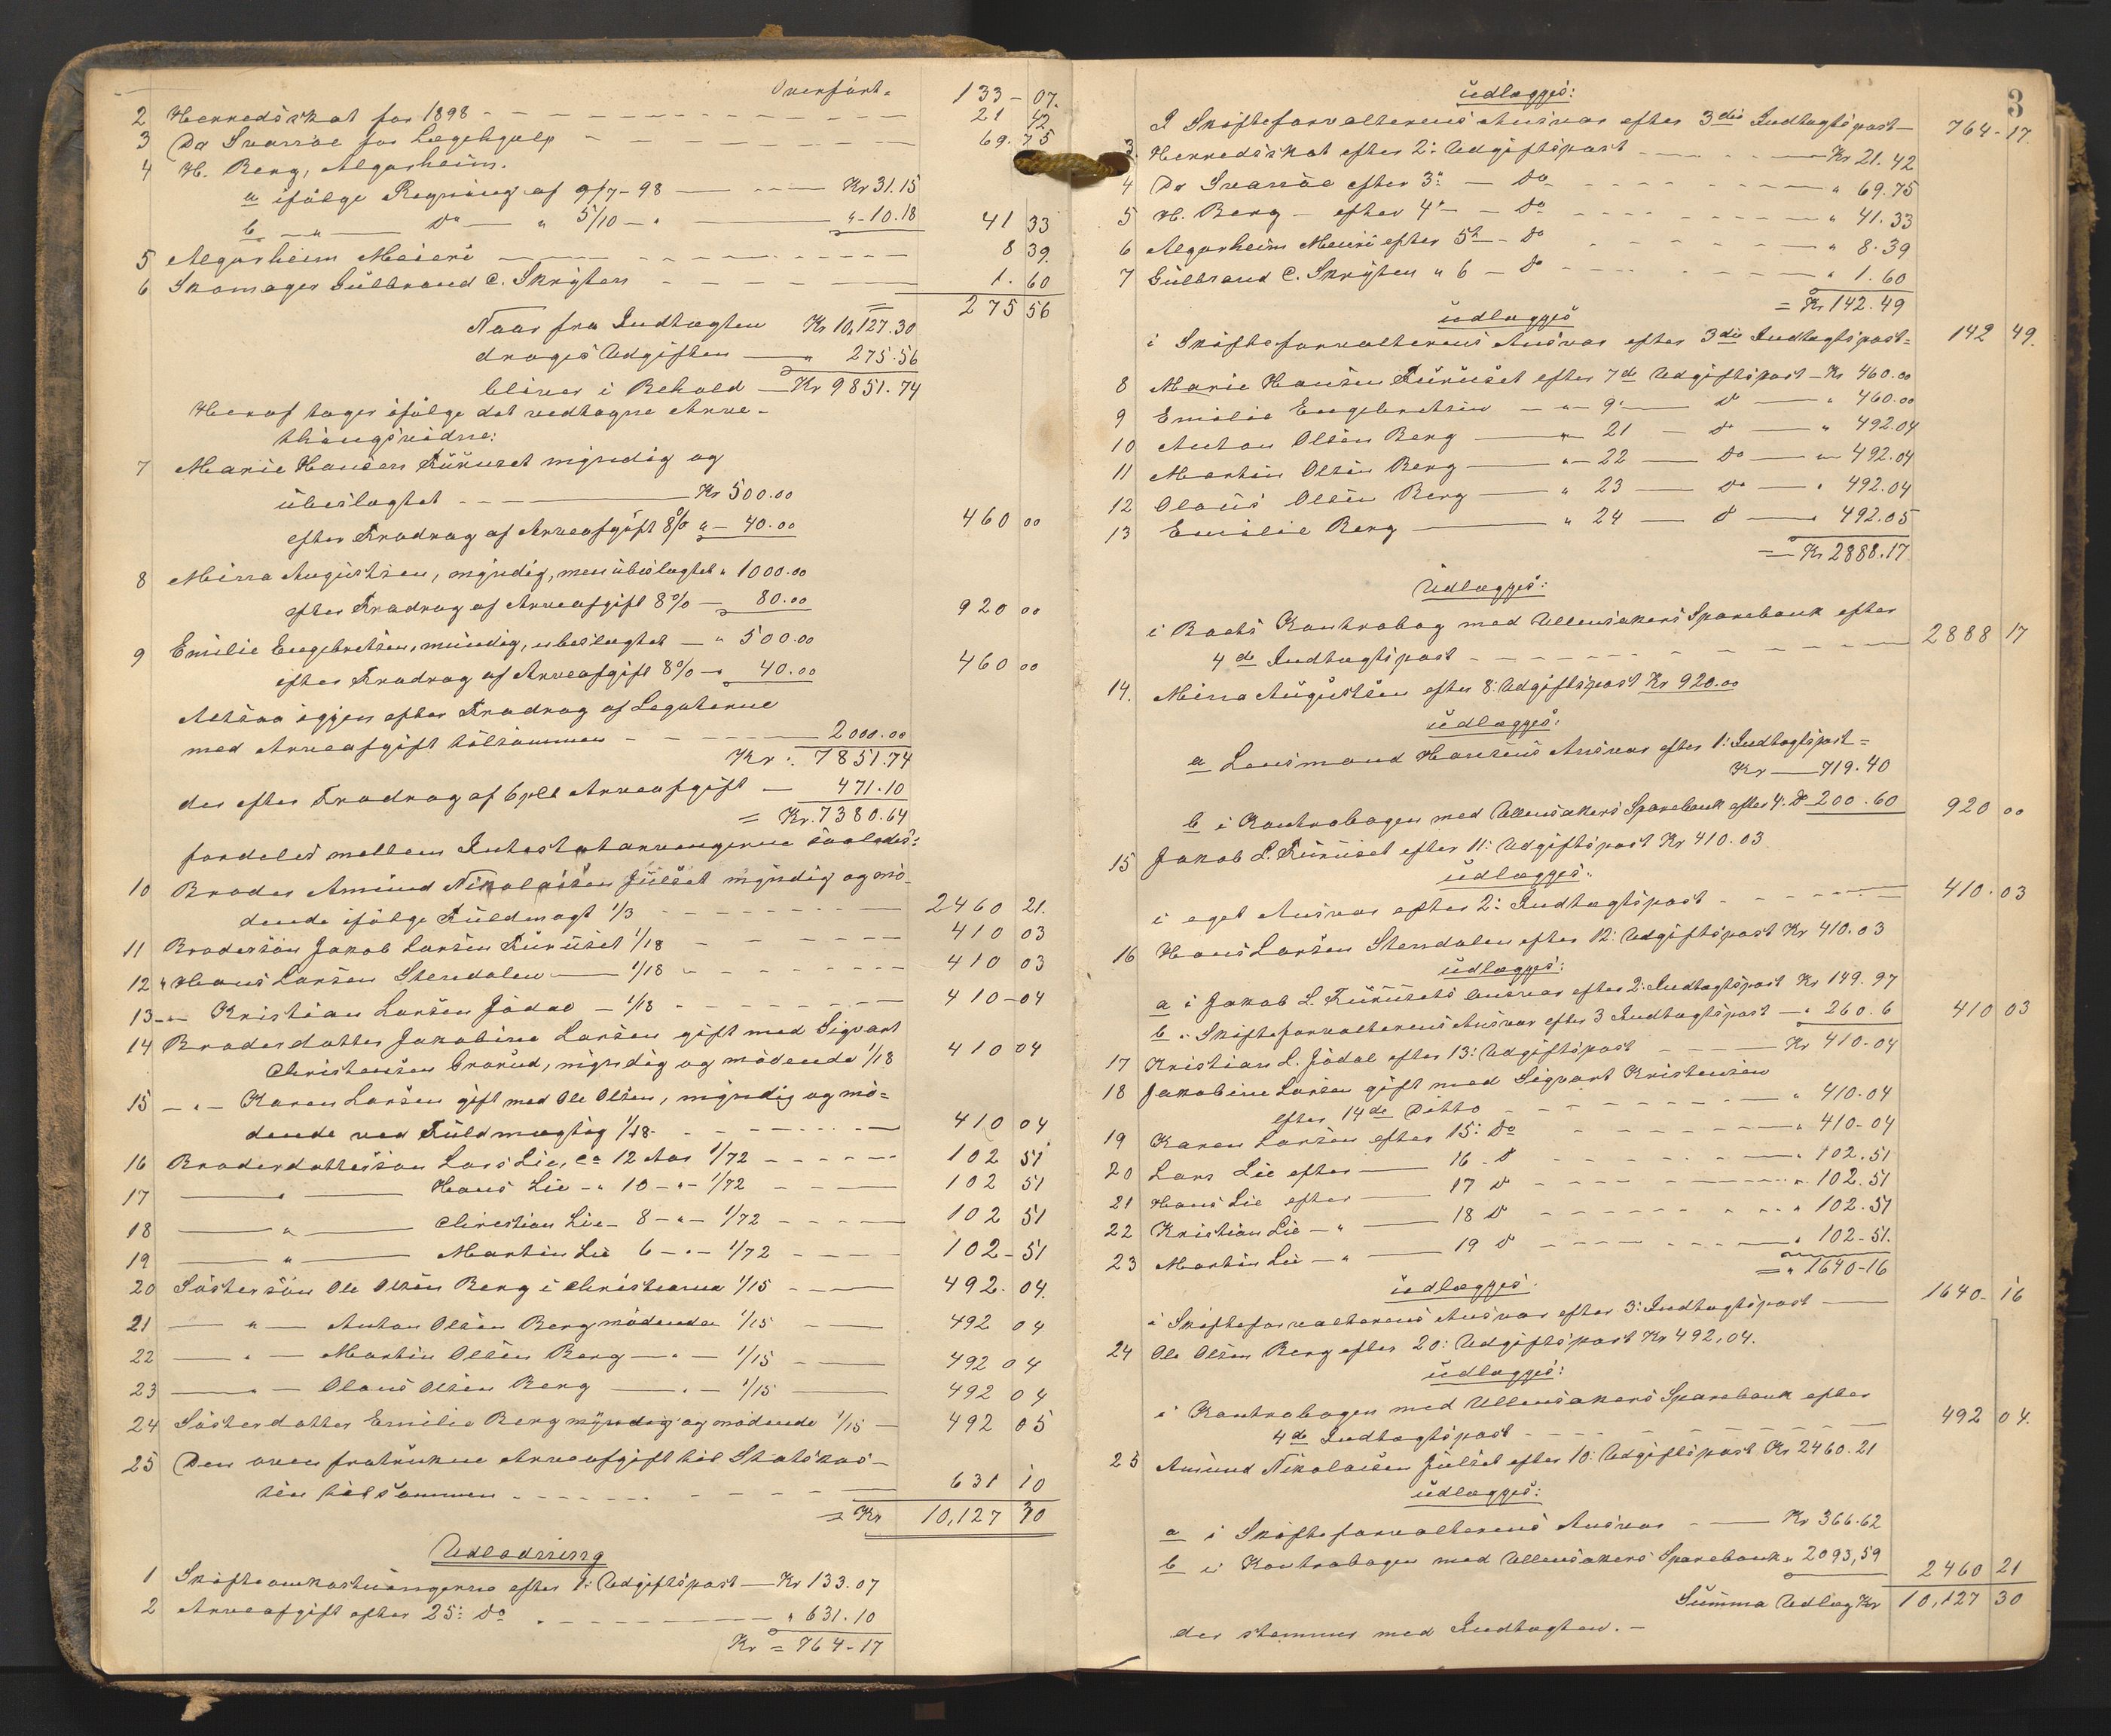 Overført = 133 - 07.
2 Herredsskat for 1898 - - - 21 42
3 Dr Svarröe for Lægehjælp - - - 69.75
4 H. Berg, Algarheim.
a ifölge Regning af 9/7-98 — Kr 31.15
b — " — Do — " 5/10 - " — " - 10.18 41 33
5 Algarheim Meieri — 8 39.
6 Skomager Gulbrand C. Skryten - - - 1.60
275 56
Naar fra Indtægten Kr 10,127.30
drages Udgiften — " 275.56
bliver i Behold — Kr 9851.74
Heraf tager ifölge det vedtagne Arve-
thingsvidne:
7 Marie Hansen Furuset myndig og
ubeslægtet — Kr 500.00
efter Fradrag af Arveafgift 8% " - 40.00 460 00
8 Mina Augustsen, myndig, men ubeslægtet " 1000.00
efter Fradrag af Arveafgift 8% — 80.00 920 00
9 Emilie Engebretsen, mündig, ubeslægtet — " 500.00
efter Fradrag af Arveafgift 8% — 40.00 460 00
Altsaa igjen efter Fradrag af Legaterne
med Arveafgift tilsammen - - - 2000.00
Kr. 7851.74
der efter Fradrag af 6 pct Arveafgift — 471.10
= Kr. 7380.64
fordeles mellem Intestatarvingerne saaledes:
10 Broder Amund Nikolaisen Julset myndig og mö-
dende ifölge Fuldmagt 1/3 - - - 2460 21.
11 Brodersön Jakob Larsen Furuset 1/18 - - - 410 03
12 " Hans Larsen Stendalen — 1/18 - - - 410 03
13 - " - Kristian Larsen Jödal — 1/18 - - - 410 - 04
14 Broderdatter Jakobine Larsen gift med Sigvart
Christensen Grorud, myndig og mödende 1/18 410 04
15 - " - Karen Larsen gift med Ole Olsen, myndig og mö-
dende ved Fuldmægtig 1/18 - - - 410 04
16 Broderdattersön Lars Lie, ca 12 Aar 1/72 - - - 102 51
17 — " — Hans Lie - " 10 - " - 1/72 - - - 102 51
18 — " — Christian Lie - 8 - " - 1/72 - - - 102 51
19 — " — Martin Lie 6 - " - 1/72 - - - 102 - 51
20 Söstersön Ole Olsen Berg i Christiania 1/15 - - - 492. 04.
21 — " — Anton Olsen Berg mödende 1/15 - - - 492 04
22 — " — Martin Olsen Berg — " — 1/15 - - - 492 04
23 — " — Olaus Olsen Berg — " — 1/15 — 492 04
24 Sösterdatter Emilie Berg myndig og mödende 1/15 — 492 05
25 Den oven fratrukne Arveafgift til Statskas-
sen tilsammen - - - 631 10
= Kr 10,127 30
Udlodning
1 Skifteomkostningerne efter 1: Udgiftspost — Kr 133.07
2 Arveafgift efter 25: Do - - - " 631.10
Kr = 764 - 17
3
udlægges:
I Skifteforvalterens Ansvar efter 3die Indtægtspost — 764 - 17.
3. Herredsskat efter 2: Udgiftspost - - - Kr 21.42
4 Dr Svarröe efter 3: — Do - - - " 69.75
5 H. Berg - efter 4: — Do - - - " 41.33
6 Algarheim Meieri efter 5te - Do - - - " 8.39
7 Gulbrand C. Skryten " 6 - Do - - - " 1.60
= Kr 142.49
udlægges
i Skifteforvalterens Ansvar efter 3die Indtægtspost = 142 49.
8 Marie Hansen Furuset efter 7de Udgiftspost - Kr 460.00
9 Emilie Engebretsen — " — 9: — Do — " 460.00
10 Anton Olsen Berg — " — 21 — Do — " 492.04
11 Martin Olsen Berg — " — 22 — Do — " 492.04
12 Olaus Olsen Berg — " 23 — Do — " 492.04
13 Emilie Berg — " 24 — Do — 492.05
= Kr 2888.17
Udlægges:
i Boets Kontrabog med Ullensakers Sparebank efter
4de Indtægtspost - - - 2888 17
14. Mina Augustsen efter 8: Udgiftspost Kr 920.00
udlægges:
a Lensmand Hansens Ansvar efter 1: Indtægtspost =
Kr — 719.40
b i Kontrabogen med Ullensakers Sparebank efter 4: Do 200.60 920 00
15 Jakob L. Furuset efter 11: Udgiftspost Kr 410.03
udlægges:
i eget Ansvar efter 2: Indtægtspost - - - 410. 03
16 Hans Larsen Stendalen efter 12: Udgiftspost Kr 410.03
udlægges:
a i Jakob L. Furusets Ansvar efter 2: Indtægtspost Kr 149.97
b i Skifteforvalterens Ansvar efter 3 Indtægtspost — " 260.6 410 03
17 Kristian L. Jödal efter 13: Udgiftspost — Kr 410.04
18 Jakobine Larsen gift med Sigvart Kristensen
efter 14de Ditto - - - " 410.04
19 Karen Larsen efter 15: Do - - - " 410-04
20 Lars Lie efter — 16 - Do - - - " 102.51
21 Hans Lie efter — 17 Do - - - " 102.51
22 Kristian Lie — " — 18 Do - - - " 102.51
23 Martin Lie — " — 19 Do - - - " 102-51.
= " 1640-16
udlægges.
i Skifteforvalterens Ansvar efter 3: Indtægtspost — 1640- 16
24 Ole Olsen Berg efter 20: Udgiftspost Kr 492,04.
udlægges:
i Kontrabogen med Ullensakers Sparebank efter
4de Indtægtspost - - - 492 04.
25 Amund Nikolaisen Julset efter 10: Udgiftspost Kr 2460.21
udlægges:
a i Skifteforvalterens Ansvar — Kr 366.62
b i Kontrabogen med Ullensakers Sparebank " 2093,59 2460 21
Summa Udlæg Kr 10,127 30
der stemmer med Indtægten. -